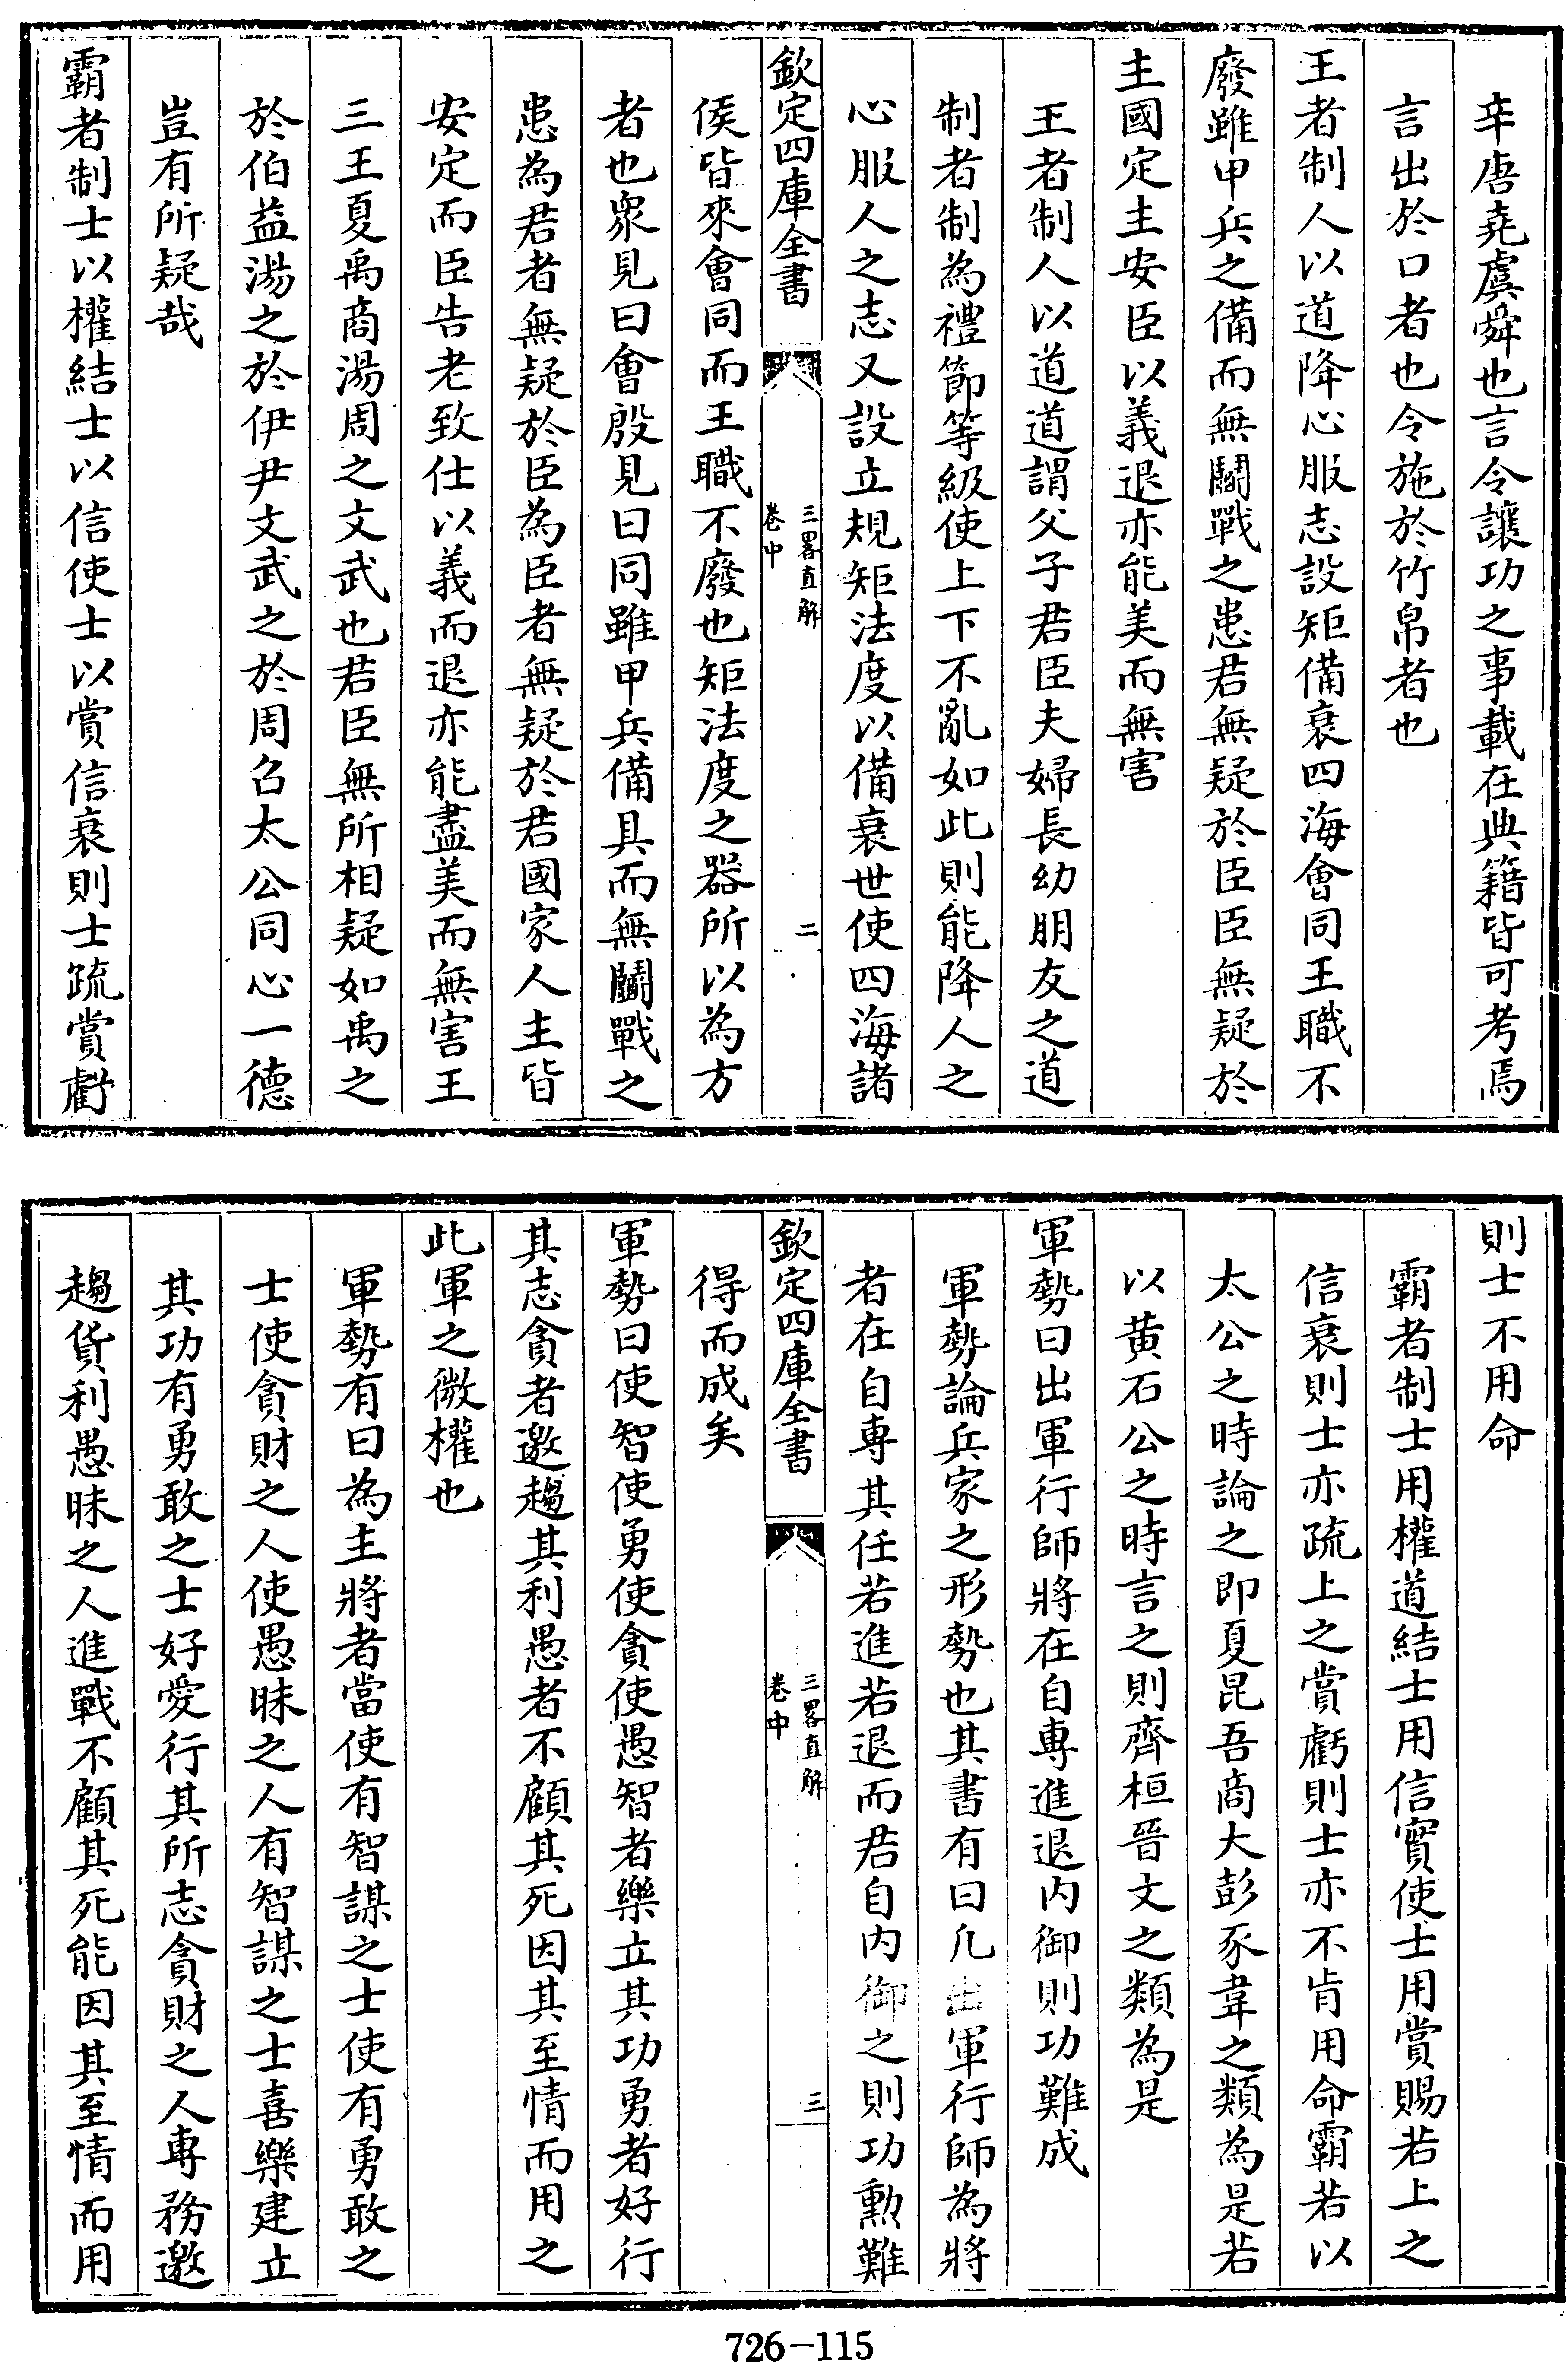 辛唐堯虞舜也言令讓功之事載在典籍皆可考焉
言出於口者也令施於竹帛者也
王者制人以道降心服志設矩備衰四海會同王職不
廢雖甲兵之備而無鬭戰之患君無疑於臣臣無疑於
主國定主安臣以義退亦能美而無害
王者制人以道道謂父子君臣夫婦長幼朋友之道
制者制為禮節等級使上下不亂如此則能降人之
心服人之志又設立規矩法度以備衰世使四海諸
欽定四庫全書
三畧直解
卷中
二
侯皆來會同而王職不廢也矩法度之器所以為方
者也衆見曰會殷見曰同雖甲兵備具而無鬭戰之
患為君者無疑於臣為臣者無疑於君國家人主皆
安定而臣告老致仕以義而退亦能盡美而無害王
三王夏禹商湯周之文武也君臣無所相疑如禹之
於伯益湯之於伊尹文武之於周召太公同心一德
豈有所疑哉
霸者制士以權結士以信使士以賞信衰則士疏賞虧
則士不用命
霸者制士用權道結士用信實使士用賞賜若上之
信衰則士亦疏上之賞虧則士亦不肯用命霸若以
太公之時論之即夏昆吾商大彭豕韋之類為是若
以黃石公之時言之則齊桓晉文之類為是
軍勢曰出軍行師將在自專進退内御則功難成
軍勢論兵家之形勢也其書有曰凡出軍行師為將
者在自專其任若進若退而君自内御之則功勲難
欽定四庫全書
三畧直解
卷中
三
得而成矣
軍勢曰使智使勇使貪使愚智者樂立其功勇者好行
其志貪者邀趨其利愚者不顧其死因其至情而用之
此軍之微權也
軍勢有曰為主將者當使有智謀之士使有勇敢之
士使貪財之人使愚昧之人有智謀之士喜樂建立
其功有勇敢之士好愛行其所志貪財之人專務邀
趨貨利愚昧之人進戰不顧其死能因其至情而用
726-115